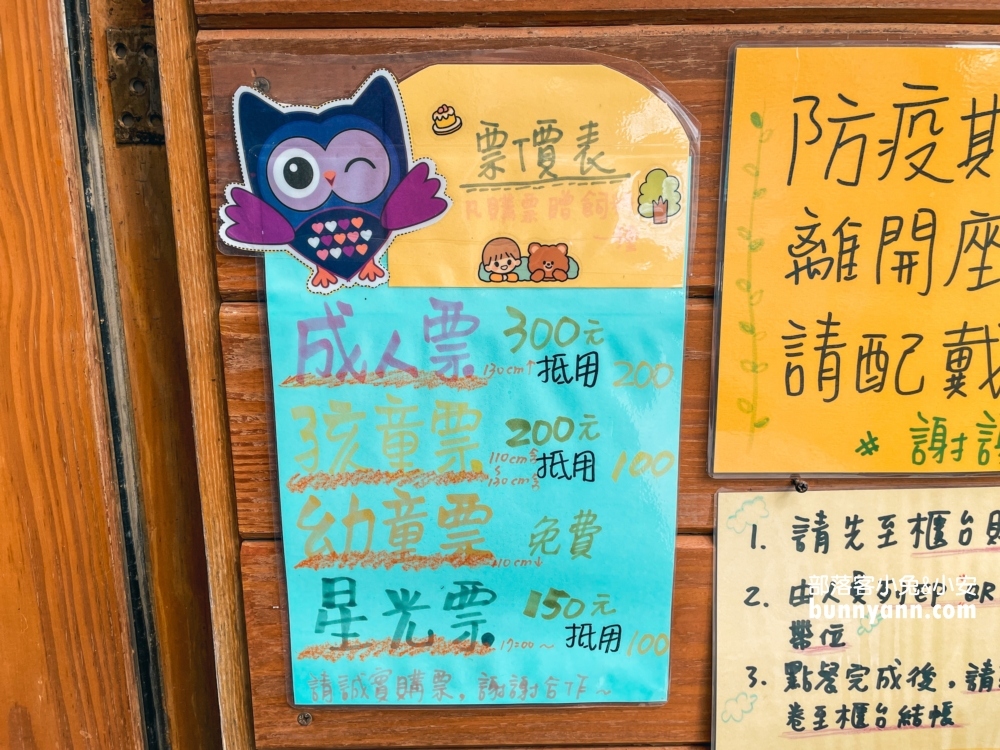 票價表
凡購票贈飼料
~種
成人票 300元
130cm↑ 抵用 200
孩童票 200元
110cm含
~
130cm含 抵用 100
幼童票 免費
110cm↓
星光票 150元
17:00~ 抵用 100
請誠實購票。謝謝合作~
防疫期
離開座
請配戴
* 謝謝
1. 請先至櫃台
2. 由
帶位
3. 點餐完成後,請
卷至櫃台結帳
部落客小兔&小安
bunnyann.com